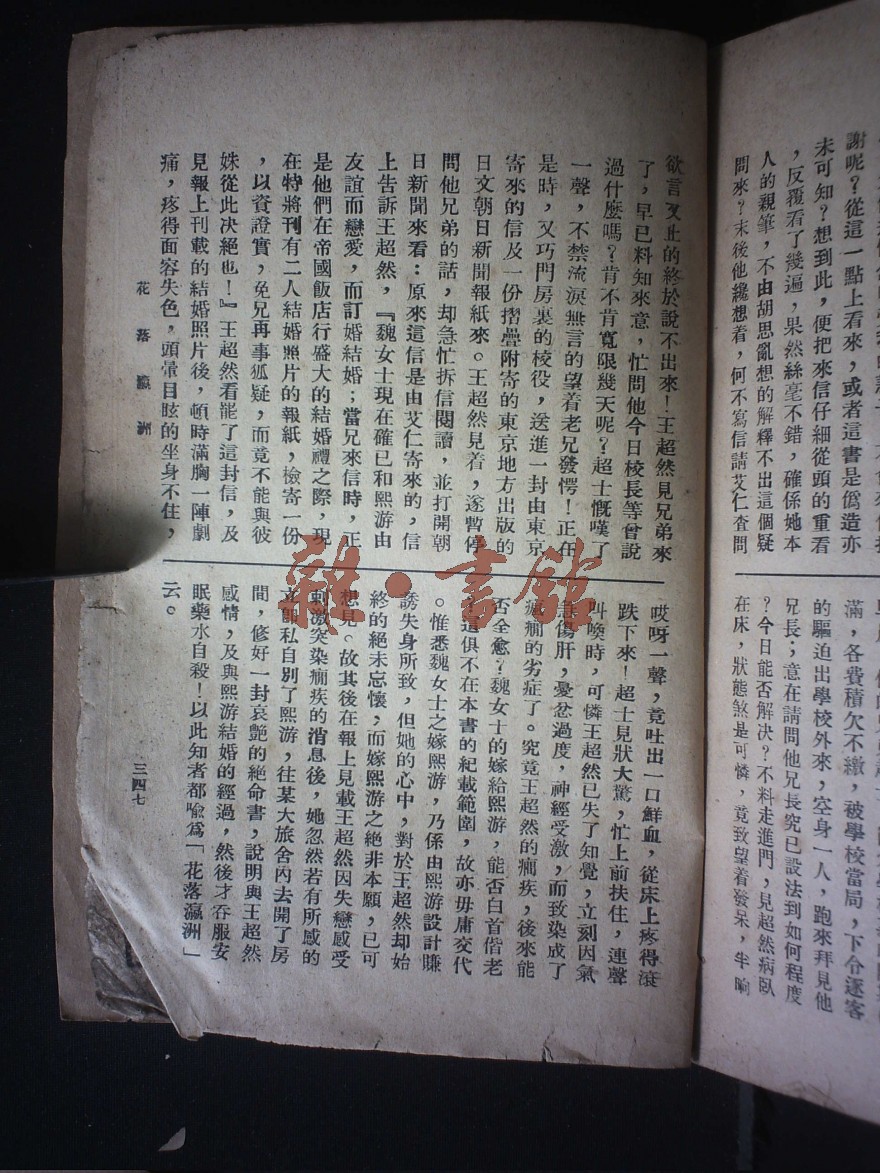 謝呢？從這一點上看來，或者這書是僞造亦
未可知？想到此，便把來信仔細從頭的重看
，反覆看了幾遍，果然絲毫不錯，確係她本
人的親筆，不由胡思亂想的解釋不出這個疑
問來？末後他纔想着，何不寫信請艾仁查問
滿，各費積欠不繳，被學校當局，下令逐客
的驅迫出學校外來，空身一人，跑來拜見他
兄長；意在請問他兄長究已設法到如何程度
？今日能否解決？不料走進門，見超然病臥
在床，狀態煞是可憐，竟致望着發呆，半晌
欲言又止的終於說不出來！王超然見兄弟來
了，早已料知來意，忙問他今日校長等曾說
過什麼嗎？肯不肯寬限幾天呢？超士慨嘆了
一聲，不禁流淚無言的望着老兄發愕！正在
是時，又巧門房裏的校役，送進一封由東京
寄來的信及一份摺疊附寄的東京地方出版的
日文朝日新聞報紙來。王超然見着，遂暫停
問他兄弟的話，却急忙拆信閱讀，並打開朝
日新聞來看：原來這信是由艾仁寄來的，信
上告訴王超然，『魏女士現在確已和熙游由
友誼而戀愛，而訂婚結婚；當兄來信時，正
是他們在帝國飯店行盛大的結婚禮之際，現
在特將刊有二人結婚照片的報紙，檢寄一份
，以資證實，免兄再事狐疑，而竟不能與彼
姝從此決絕也！』王超然看罷了這封信，及
見報上刊載的結婚照片後，頓時滿胸一陣劇
痛，疼得面容失色，頭暈目眩的坐身不住，
哎呀一聲，竟吐出一口鮮血，從床上疼得滾
跌下來！超士見狀大驚，忙上前扶住，連聲
叫喚時，可憐王超然已失了知覺，立刻因氣
急傷肝，憂忿過度，神經受激，而致染成了
瘋癇的劣症了。究竟王超然的癇疾，後來能
否全愈？魏女士的嫁給熙游，能否白首偕老
？這俱不在本書的紀載範圍，故亦毋庸交代
。惟悉魏女士之嫁熙游，乃係由熙游設計賺
誘失身所致，但她的心中，對於王超然却始
終的絕未忘懷，而嫁熙游之絕非本願，已可
想見。故其後在報上見載王超然因失戀感受
刺激突染癇疾的消息後，她忽然若有所感的
立即私自別了熙游，往某大旅舍內去開了房
間，修好一封哀艷的絕命書，說明與王超然
感情，及與熙游結婚的經過，然後才吞服安
眠藥水自殺！以此知者都喩爲「花落瀛洲」
云。
花落瀛洲
三四七
雜·書館